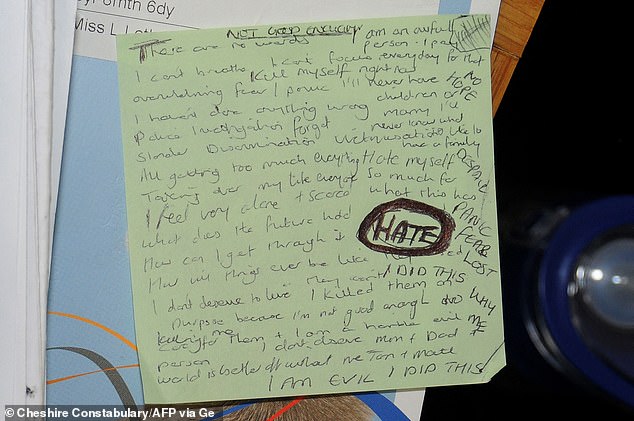 6dy
Miss L
NOT GOOD ENOUGH
There are no words
I am an awful
person - I pay
everyday for that
I can't breathe I can't focus
Kill myself right now
overwhelming fear / panic I'll never have
children or
NO
HOPE
I haven't done anything wrong
marry I'll
never know what
Police investigation forget
Slander Discrimination Victimisation
like to
have a family
All getting too much everything
I Hate myself
so much for
what this has
DESPAIR
Taking over my life everyone
I feel very alone + scared
What does the future hold
How can I get through it
How will things ever be like
HATE
PANIC
FEAR
LOST
I DID THIS
I don't deserve to live
I killed them on
purpose because I'm not good enough
WHY
ME
to care for them + I am a horrible evil
person
I don't deserve mum + Dad
world is better off without me
I AM EVIL I DID THIS
© Cheshire Constabulary/AFP via Ge